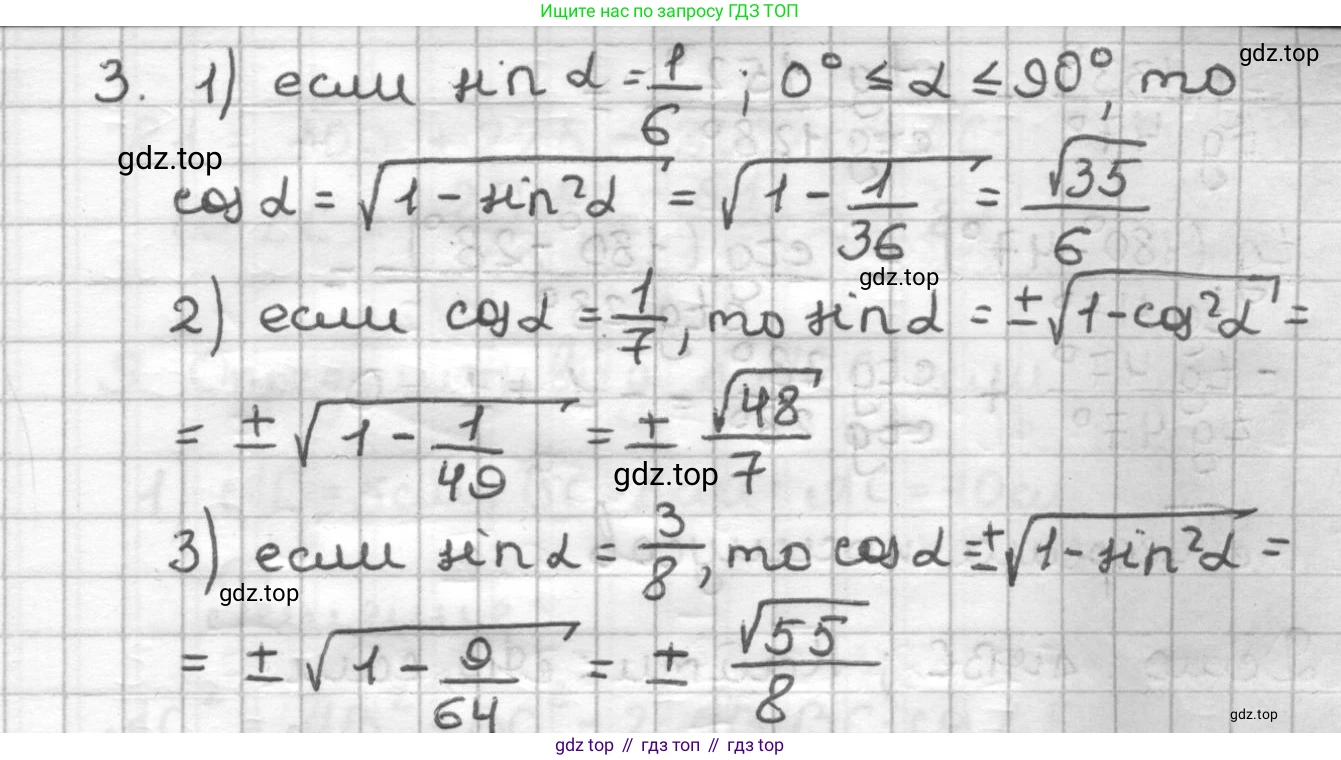 Ищите нас по запросу ГДЗ ТОП
gdz.top
3. 1) если sin α = 1/6 ; 0° ≤ α ≤ 90°, то
gdz.top
cos α = √(1 - sin²α) = √(1 - 1/36) = √35/6
gdz.top
2) если cos α = 1/7, то sin α = ±√(1 - cos²α) =
= ± √(1 - 1/49) = ± √48/7
gdz.top
3) если sin α = 3/8, то cos α = ±√(1 - sin²α) =
gdz.top
= ± √(1 - 9/64) = ± √55/8
gdz.top
gdz top // гдз топ // gdz top